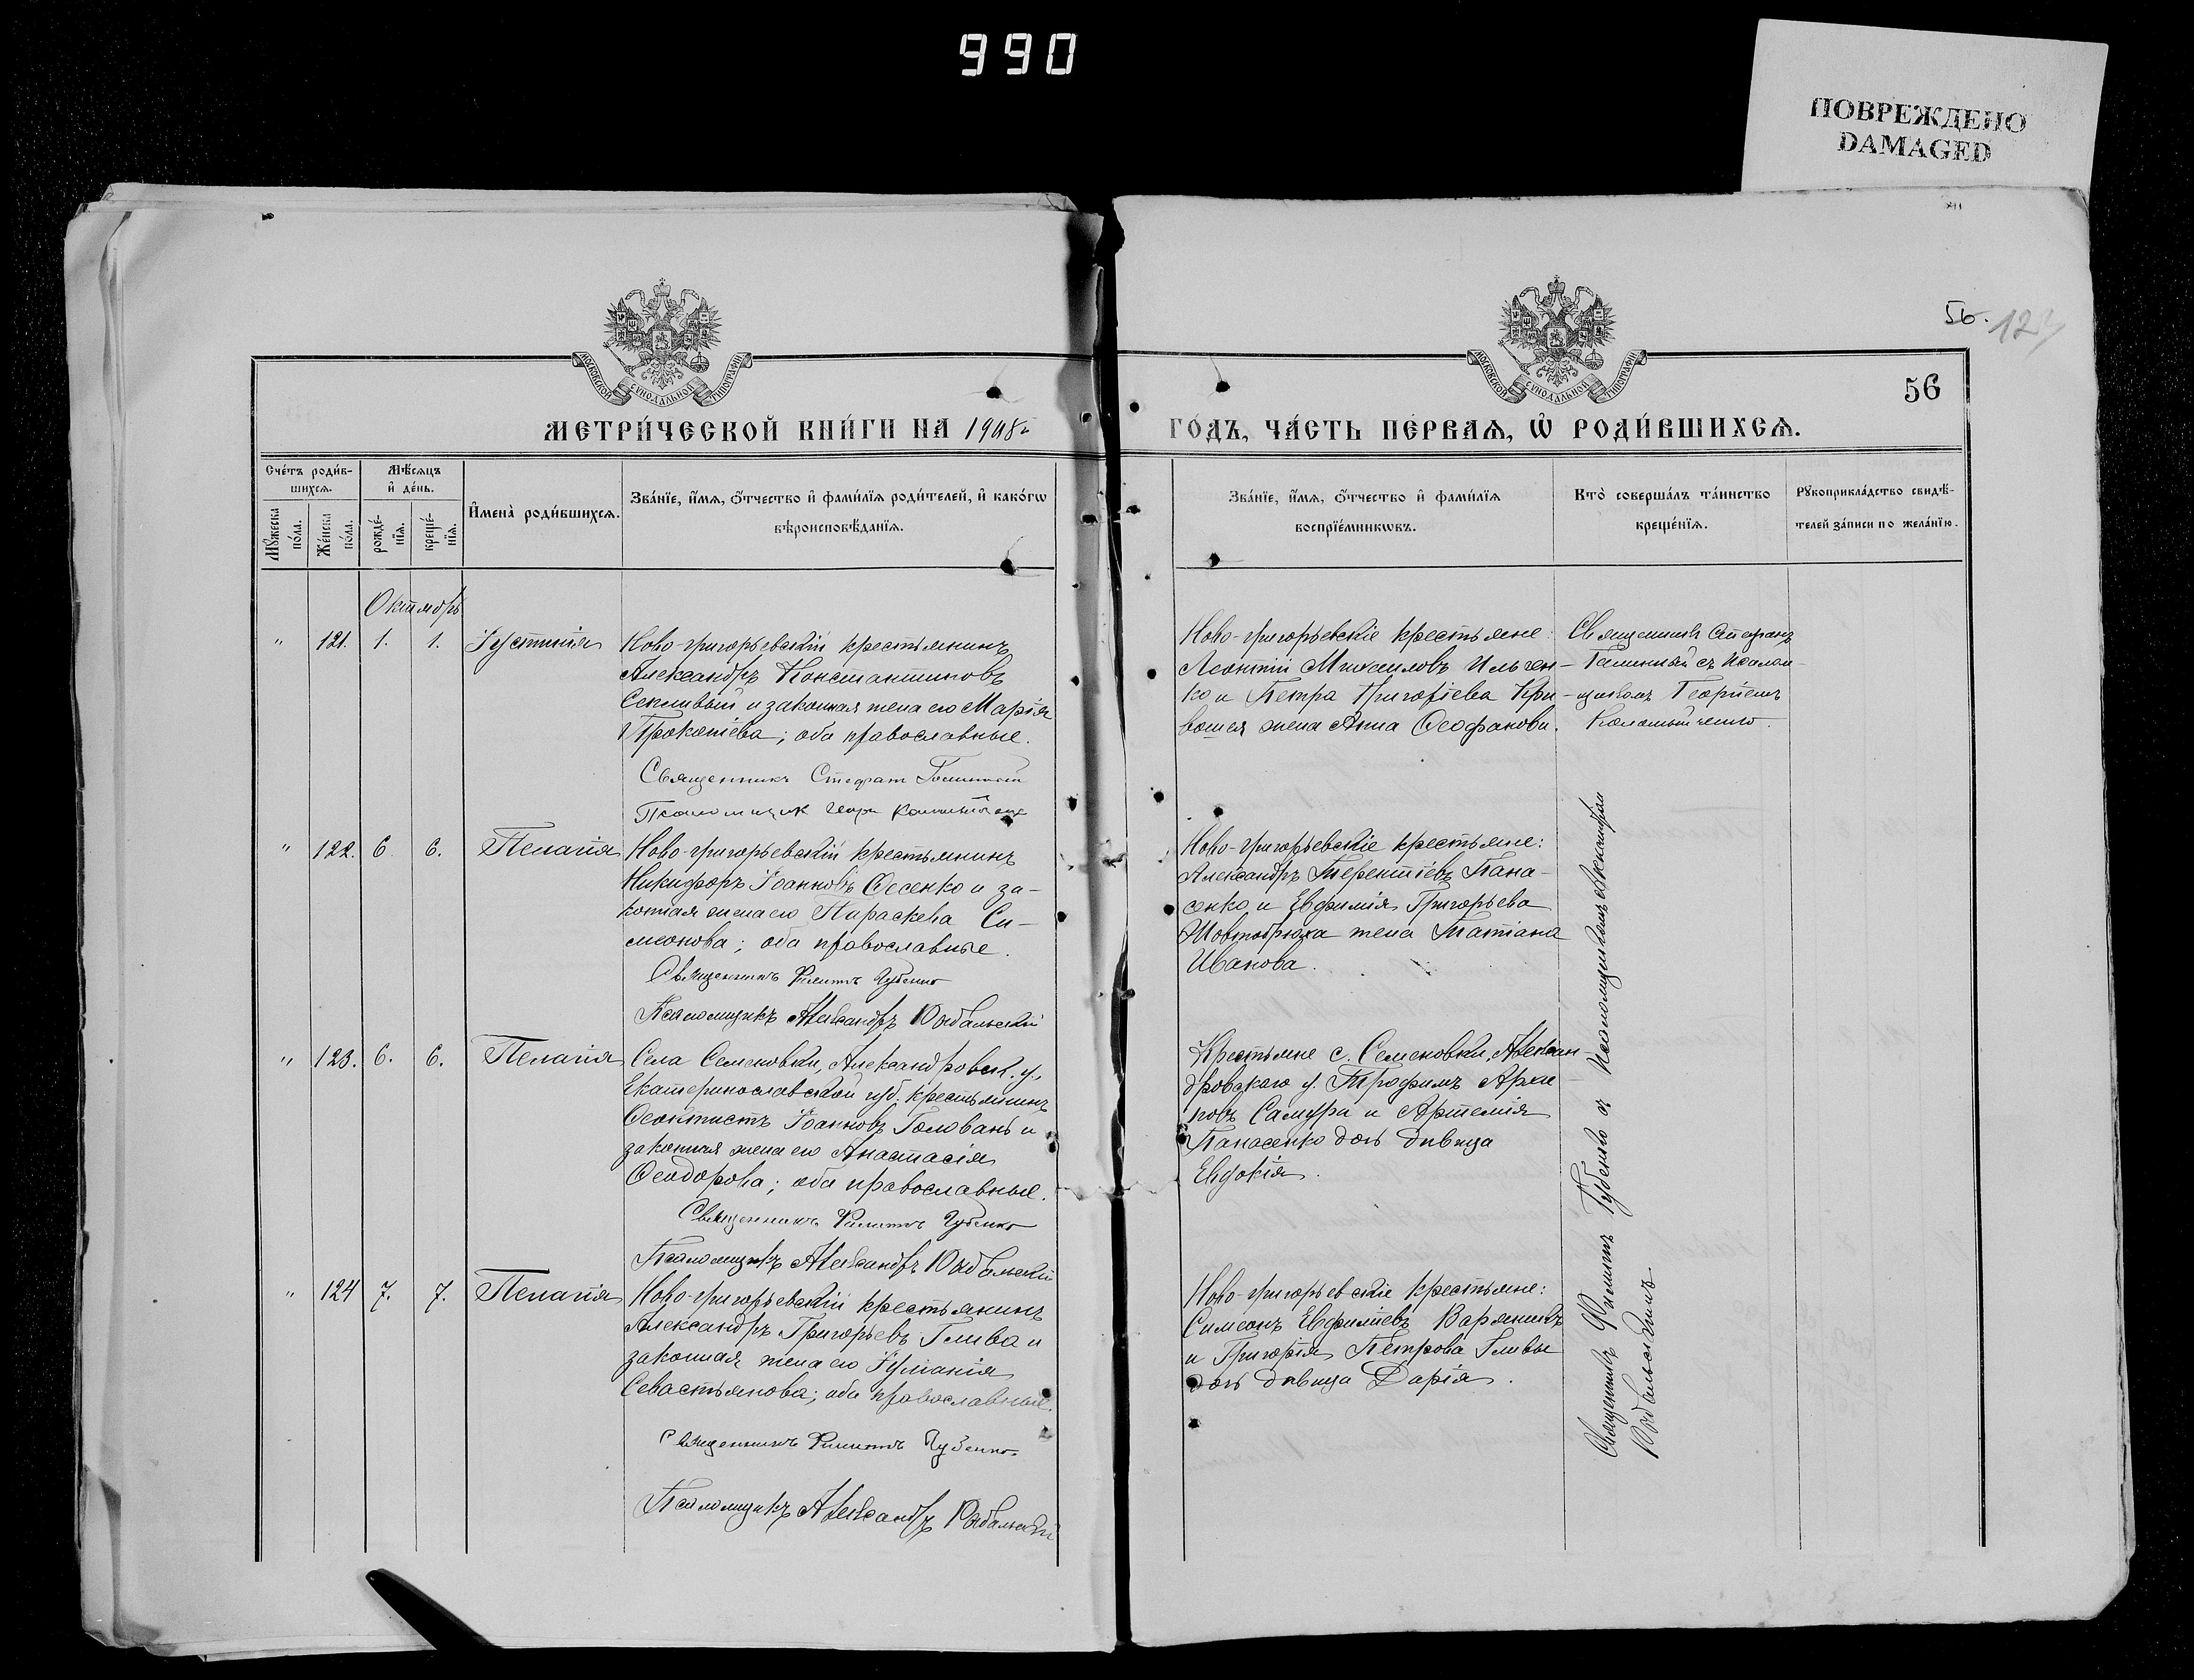 990
ПОВРЕЖДЕНО
DAMAGED
56.
123
МОСКОВСКОЙ СѴНОДАЛЬНОЙ ТИПОГРАФІИ
МОСКОВСКОЙ СѴНОДАЛЬНОЙ ТИПОГРАФІИ
56
МЕТРИ́ЧЕСКОЙ КНИ́ГИ НА 1908й
ГО́ДЪ, ЧА́СТЬ ПЕ́РВАѦ, Ѽ РОДИ́ВШИХСѦ.
Сче́тъ роди́в-
шихсѧ.
Мꙋ́жеска
по́ла.
Же́нска
по́ла.
Мѣ́сѧцъ
и҆ де́нь.
рожде́-
нїѧ.
креще́-
нїѧ.
И҆мена̀ роди́вшихсѧ.
Зва́нїе, и҆́мѧ, ѻ҆́тчество и҆ фами́лїѧ роди́телей, и҆ како́гѡ
вѣроисповѣ́данїѧ.
Зва́нїе, и҆́мѧ, ѻ҆́тчество и҆ фами́лїѧ
воспрїе́мникѡвъ.
Кто̀ соверша́лъ та́инство
креще́нїѧ.
Рꙋкоприкла́дство свидѣ́-
телей за́писи по жела́нїю.
Октябрь
" 121. 1. 1. Іустинія
Ново-григорьевскій крестьянинъ
Александръ Константиновъ
Секливый и законная жена его Марія
Прокопіева; оба православные.
Священникъ Стефан
Псаломщик Георг
Ново-григорьевскіе крестьяне:
Леонтій Михаиловъ Ильчен-
ко и Петра Григоріева Кри-
вошея жена Анна Ѳеофанова.
Священникъ Стефанъ
съ псалом-
щикомъ Георгіемъ
" 122. 6. 6. Пелагія
Ново-григорьевскій крестьянинъ
Никифоръ Іоанновъ Ѳесенко и за-
конная жена его Параскева Си-
меонова; оба православные.
Священникъ Филиппъ Губенко
Псаломщикъ Александръ Рыбальскій
Ново-григорьевскіе крестьяне:
Александръ Терентіевъ Пана-
сенко и Евфимія Григорьева
Жовтобрюха жена Татіана
Иванова.
" 123. 6. 6. Пелагія
Села Семеновки, Александровск. у.,
Екатеринославской губ. крестьянинъ
Ѳеоктистъ Іоанновъ Головань и
законная жена его Анастасія
Ѳеодорова; оба православные.
Священникъ Филиппъ Губенко
Псаломщикъ Александръ Рыбальскій
Крестьяне с. Семеновки, Алексан-
дровскаго у. Трофимъ Архи-
повъ Самура и Артемія
Панасенко дочь дѣвица
Евдокія.
" 124 7. 7. Пелагія
Ново-григорьевскій крестьянинъ
Александръ Григорьевъ Глива и
законная жена его Іуліанія
Севастьянова; оба православные.
Священникъ Филиппъ Губенко.
Псаломщикъ Александръ Рыбальскій
Ново-григорьевскіе крестьяне:
Симеонъ Евфиміевъ Варяникъ
и Григорія Петрова Гливы
дочь дѣвица Дарія.
Священникъ Филиппъ Губенко съ псаломщикомъ Александромъ
Рыбальскимъ.